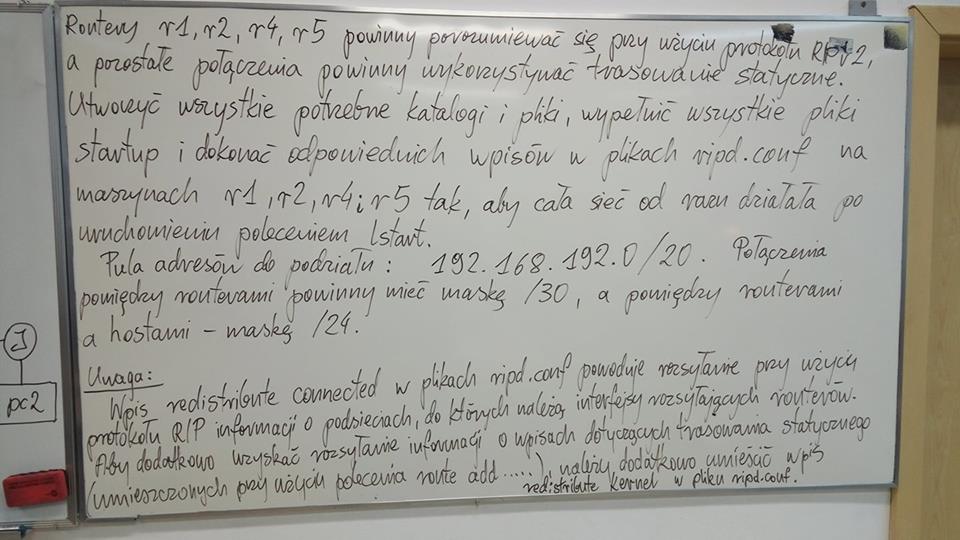 Routery r1, r2, r4, r5 powinny porozumiewać się przy użyciu protokołu RIPv2,
a pozostałe połączenia powinny wykorzystywać trasowanie statyczne.
Utworzyć wszystkie potrzebne katalogi i pliki, wypełnić wszystkie pliki
startup i dokonać odpowiednich wpisów w plikach ripd.conf na
maszynach r1, r2, r4 i r5 tak, aby cała sieć od razu działała po
uruchomieniu poleceniem lstart.
Pula adresów do podziału: 192.168.192.0/20. Połączenia
pomiędzy routerami powinny mieć maskę /30, a pomiędzy routerami
a hostami - maskę /24.
Uwaga:
Wpis redistribute connected w plikach ripd.conf powoduje rozsyłanie przy użyciu
protokołu RIP informacji o podsieciach, do których należą interfejsy rozsyłających routerów.
Aby dodatkowo uzyskać rozsyłanie informacji o wpisach dotyczących trasowania statycznego
(umieszczonych przy użyciu polecenia route add .....), należy dodatkowo umieścić wpis
redistribute kernel w pliku ripd.conf.
J
pc2